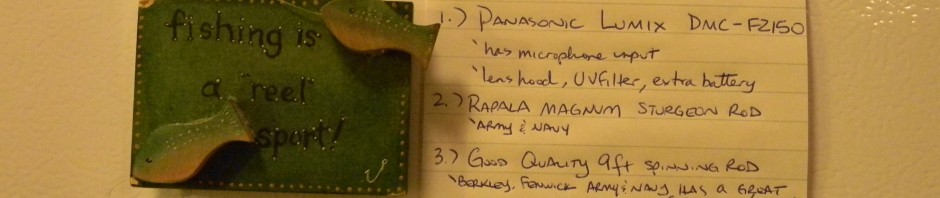 fishing is
a "reel"
sport!
1.) PANASONIC LUMIX DMC-FZ150
'has microphone input
'lens hood, UV filter, extra battery
2.) RAPALA MAGNUM STURGEON ROD
'ARMY & NAVY
3.) GOOD QUALITY 9ft SPINNING ROD
'BERKLEY, FENWICK ARMY & NAVY HAS A GREAT